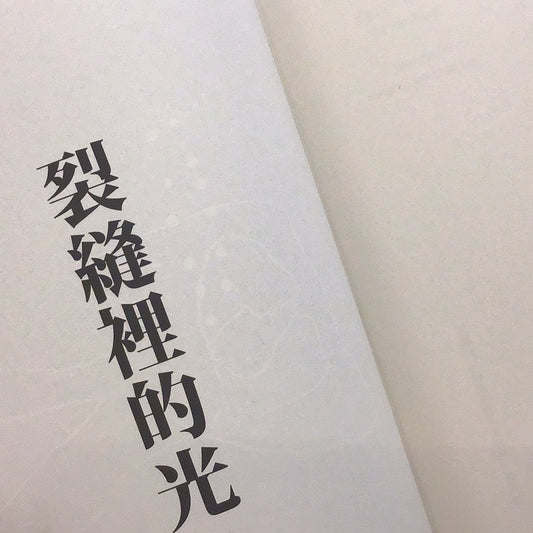 裂縫裡的光